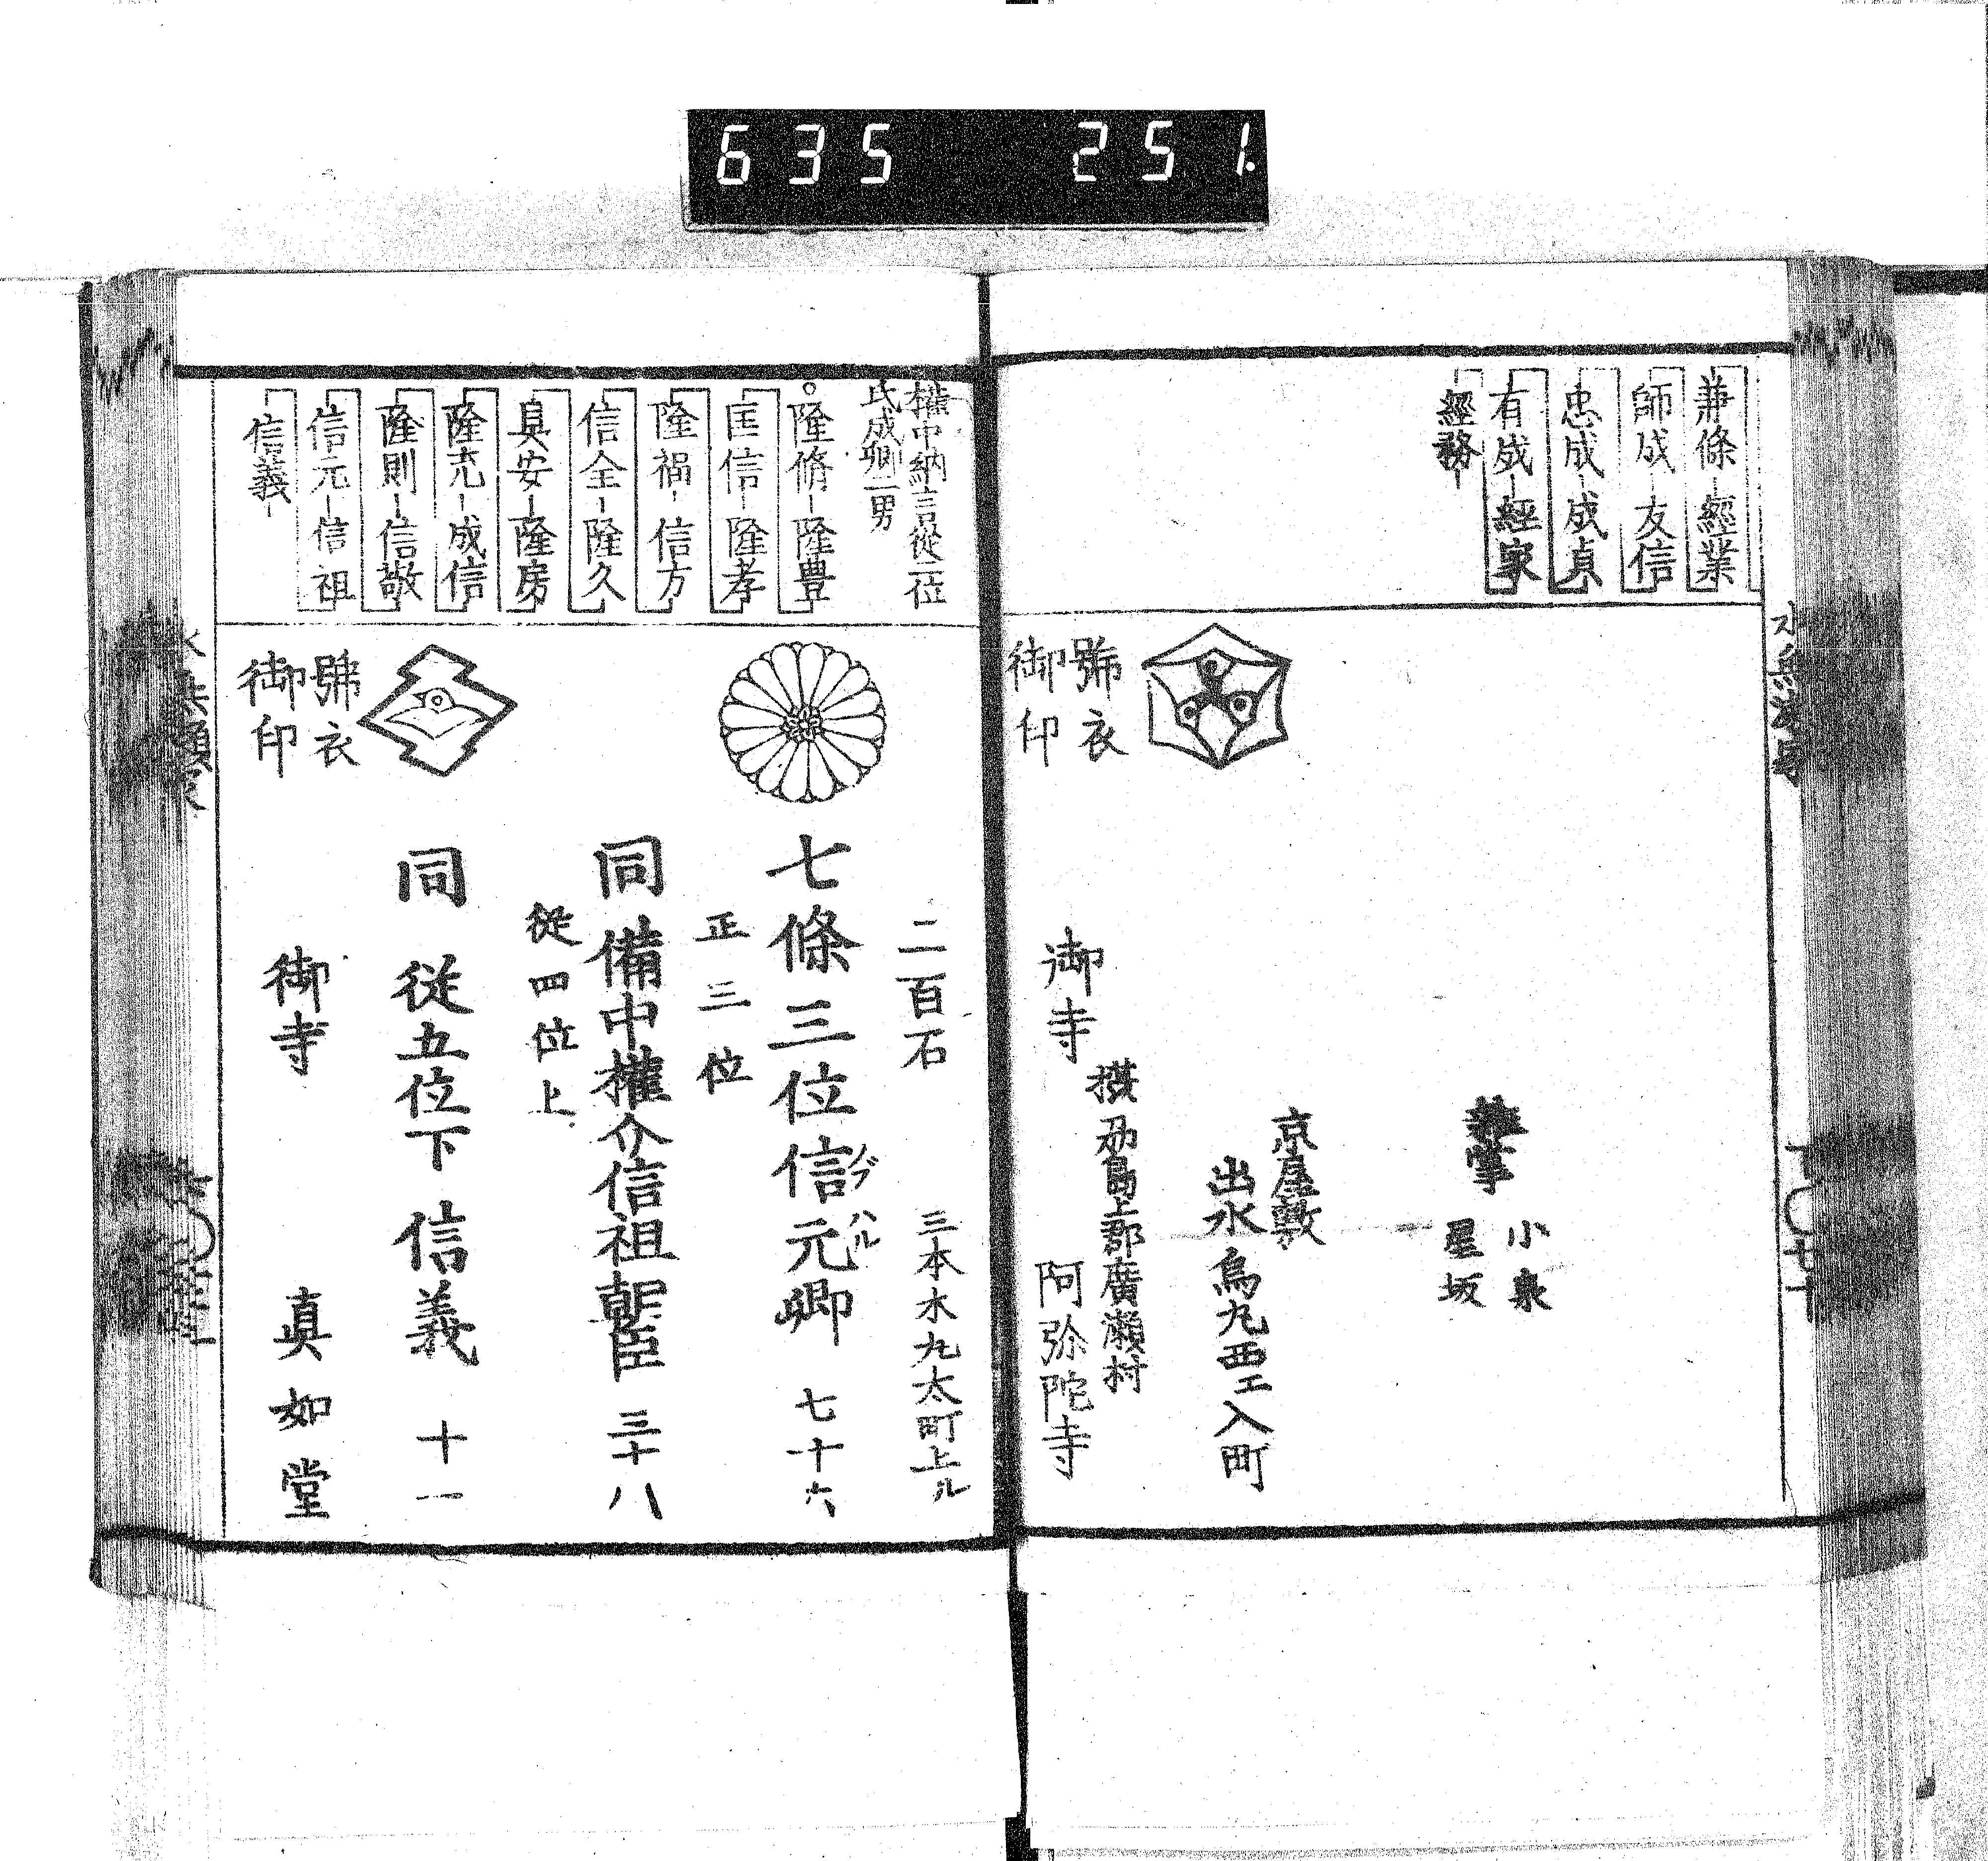 635 251.
兼條-經業
師成-友信
忠成-成貞
有成-經家
經務-
雑掌
小泉
星坂
京屋敷
出水烏丸西エ入町
號衣
御印
御寺
摂刕島上郡廣瀬村
阿弥陀寺
權中納言従二位
氏成卿二男
隆脩-隆豊
匡信-隆孝
隆福-信方
信全-隆久
具安-隆房
隆充-成信
隆則-信敬
信元-信祖
信義-
二百石
三本木丸太町上ル
七條三位信元卿 七十六
ノブハル
正三位
同備中權介信祖朝臣 三十八
従四位上
同 従五位下信義 十一
號衣
御印
御寺
真如堂